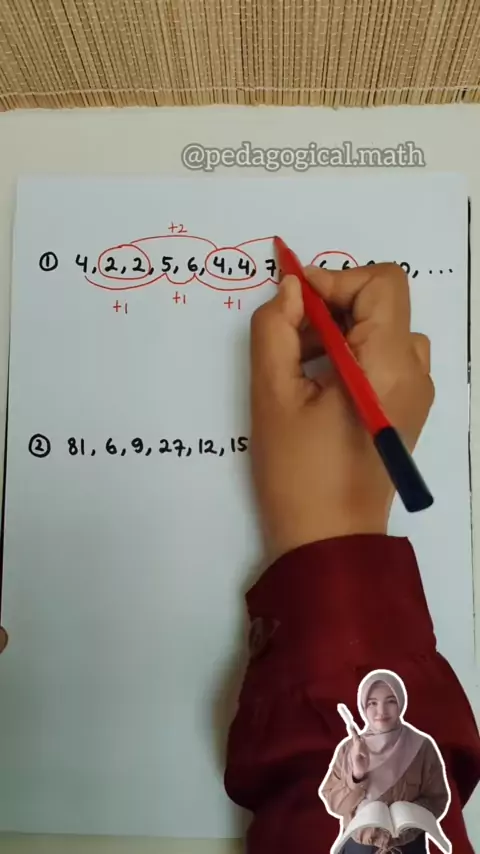 @pedagogical.math
+2
① 4, 2, 2, 5, 6, 4, 4, 7, ...
+1 +1 +1
② 81, 6, 9, 27, 12, 15